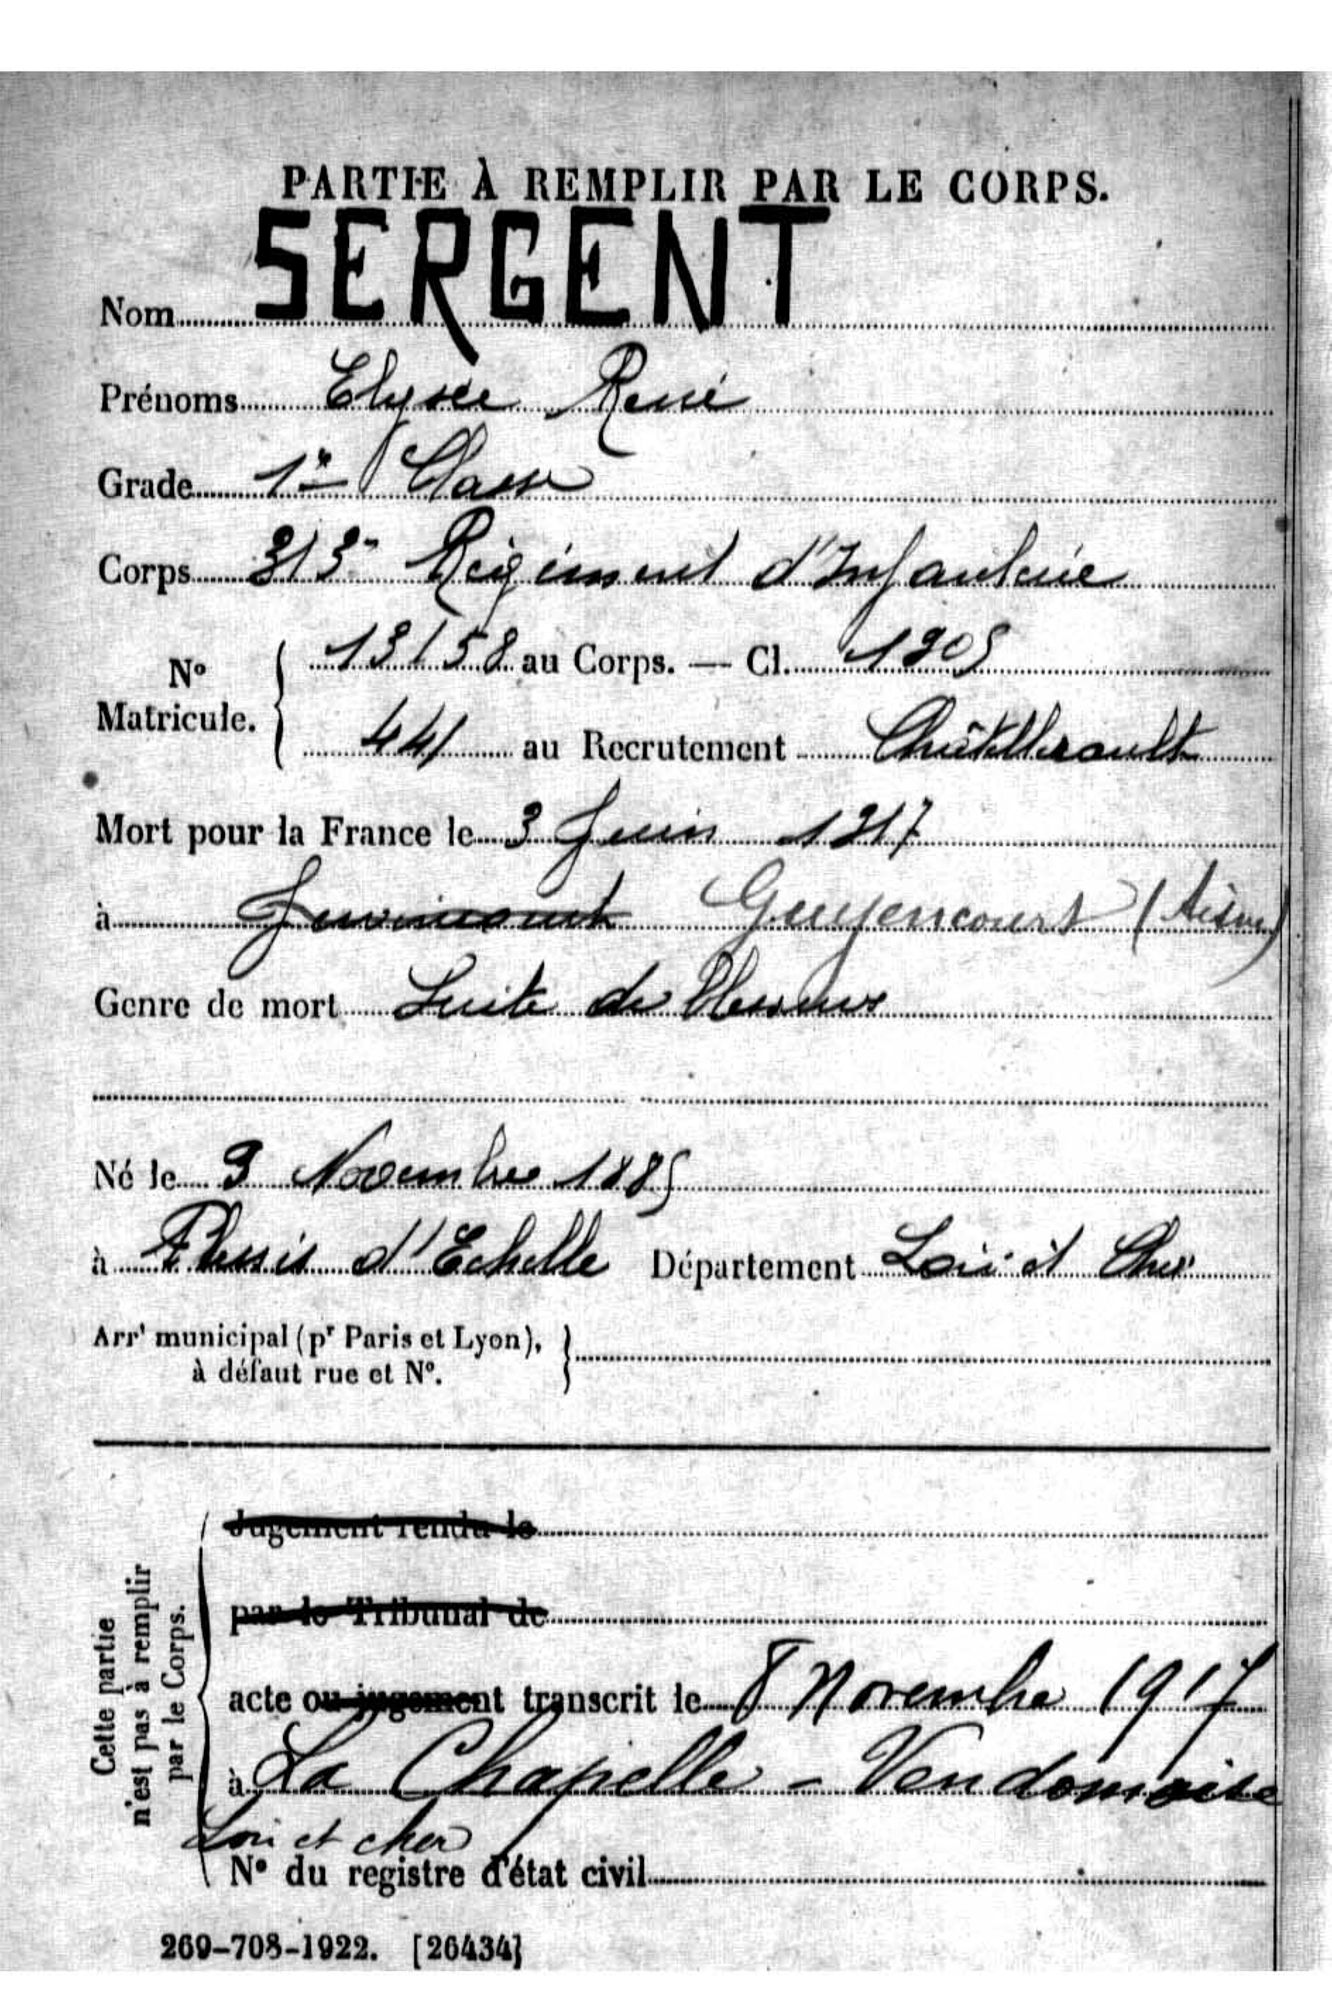 PARTIE À REMPLIR PAR LE CORPS.
Nom SERGENT
Prénoms Elysée René
Grade 1re Classe
Corps 313e Régiment d'Infanterie
No Matricule. 13158 au Corps. — Cl. 1905
441 au Recrutement Châtellerault
Mort pour la France le 3 Juin 1917
à Juvincourt Guyencourt (Aisne)
Genre de mort Suite de blessures
Né le 9 Novembre 1885
à Plessis d'Echelle Département Loir et Cher
Arrt municipal (pr Paris et Lyon),
à défaut rue et No.
Jugement rendu le
par le Tribunal de
acte ou jugement transcrit le 8 Novembre 1917
à La Chapelle - Vendomoise
Loir et cher
No du registre d'état civil
Cette partie
n'est pas à remplir
par le Corps.
269-708-1922. [26434]